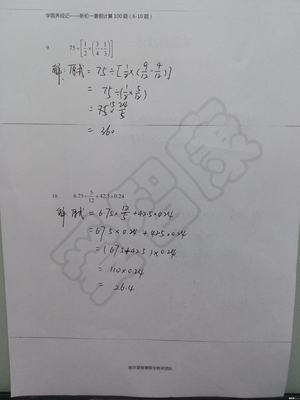 学霸养成记——新初一暑假计算 100 题（6-10 题）
9. 75÷[1/2×(3/4-1/3)]
解: 原式 = 75÷[1/2×(9/12-4/12)]
= 75÷(1/2×5/12)
= 75×24/5
= 360
10. 6.75÷5/12+42.5×0.24
解 原式 = 6.75×12/5+42.5×0.24
= 67.5×0.24+42.5×0.24
= (67.5+42.5)×0.24
= 110×0.24
= 26.4